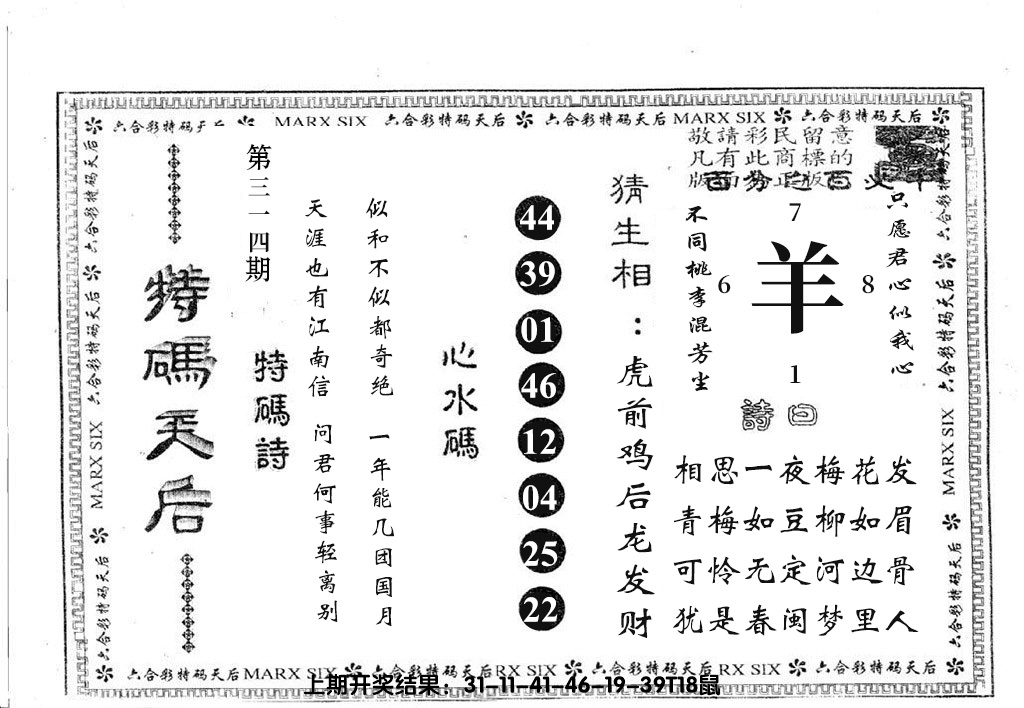 六合彩特码天后 MARX SIX 六合彩特码天后 六合彩特码天后 MARX SIX 六合彩特码天后
特碼天后
第三一四期
特碼詩
天涯也有江南信 问君何事轻离别
似和不似都奇绝 一年能几团国月
心水碼
44
39
01
46
12
04
25
22
猜生相：虎前鸡后龙发财
敬請彩民留意
凡有此商標的
版面为正版
不同桃李混芳尘
只愿君心似我心
7
6
羊
8
1
詩曰
相思一夜梅花发
青梅如豆柳如眉
可怜无定河边骨
犹是春闺梦里人
六合彩特码天后 MARX SIX 六合彩特码天后
六合彩特码天后 MARX SIX 六合彩特码天后
六合彩特码天后 MARX SIX 六合彩特码天后RX SIX 六合彩特码天后RX SIX 六合彩特码天后
上期开奖结果：31-11-41-46-19-39T18鼠